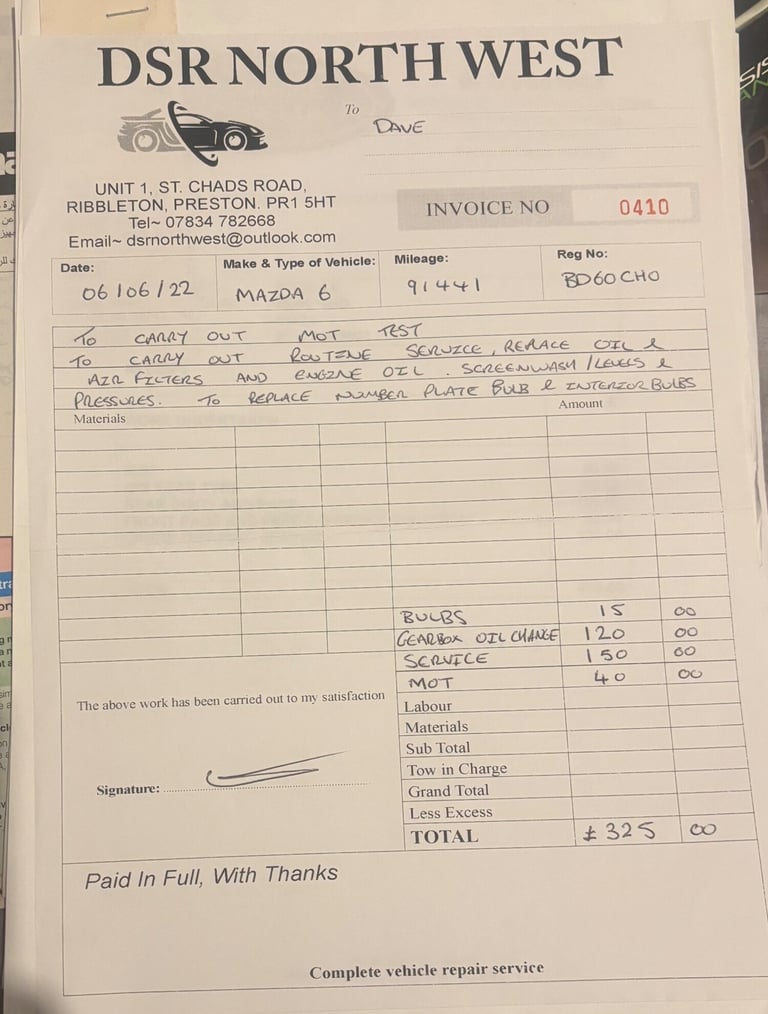 DSR NORTH WEST
To
DAVE
UNIT 1, ST. CHADS ROAD,
RIBBLETON, PRESTON. PR1 5HT
Tel~ 07834 782668
Email~ dsrnorthwest@outlook.com
INVOICE NO 0410
Date: Make & Type of Vehicle: Mileage: Reg No:
06/06/22 MAZDA 6 91441 BD60CHO
TO CARRY OUT MOT TEST
TO CARRY OUT ROUTINE SERVICE, REPLACE OIL &
AIR FILTERS AND ENGINE OIL. SCREENWASH/LEVELS &
PRESSURES. TO REPLACE NUMBER PLATE BULB & INTERIOR BULBS
Materials Amount
BULBS 15 00
GEARBOX OIL CHANGE 120 00
SERVICE 150 00
MOT 40 00
The above work has been carried out to my satisfaction
Labour
Materials
Sub Total
Tow in Charge
Signature:
Grand Total
Less Excess
TOTAL £325 00
Paid In Full, With Thanks
Complete vehicle repair service